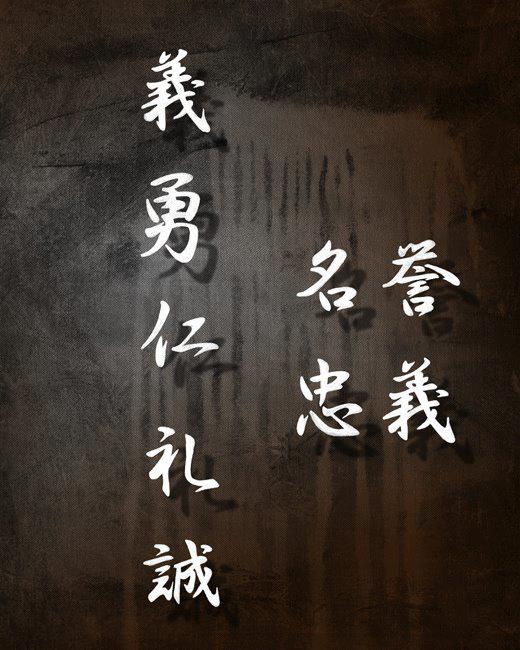 義勇仁礼誠
名誉
忠義